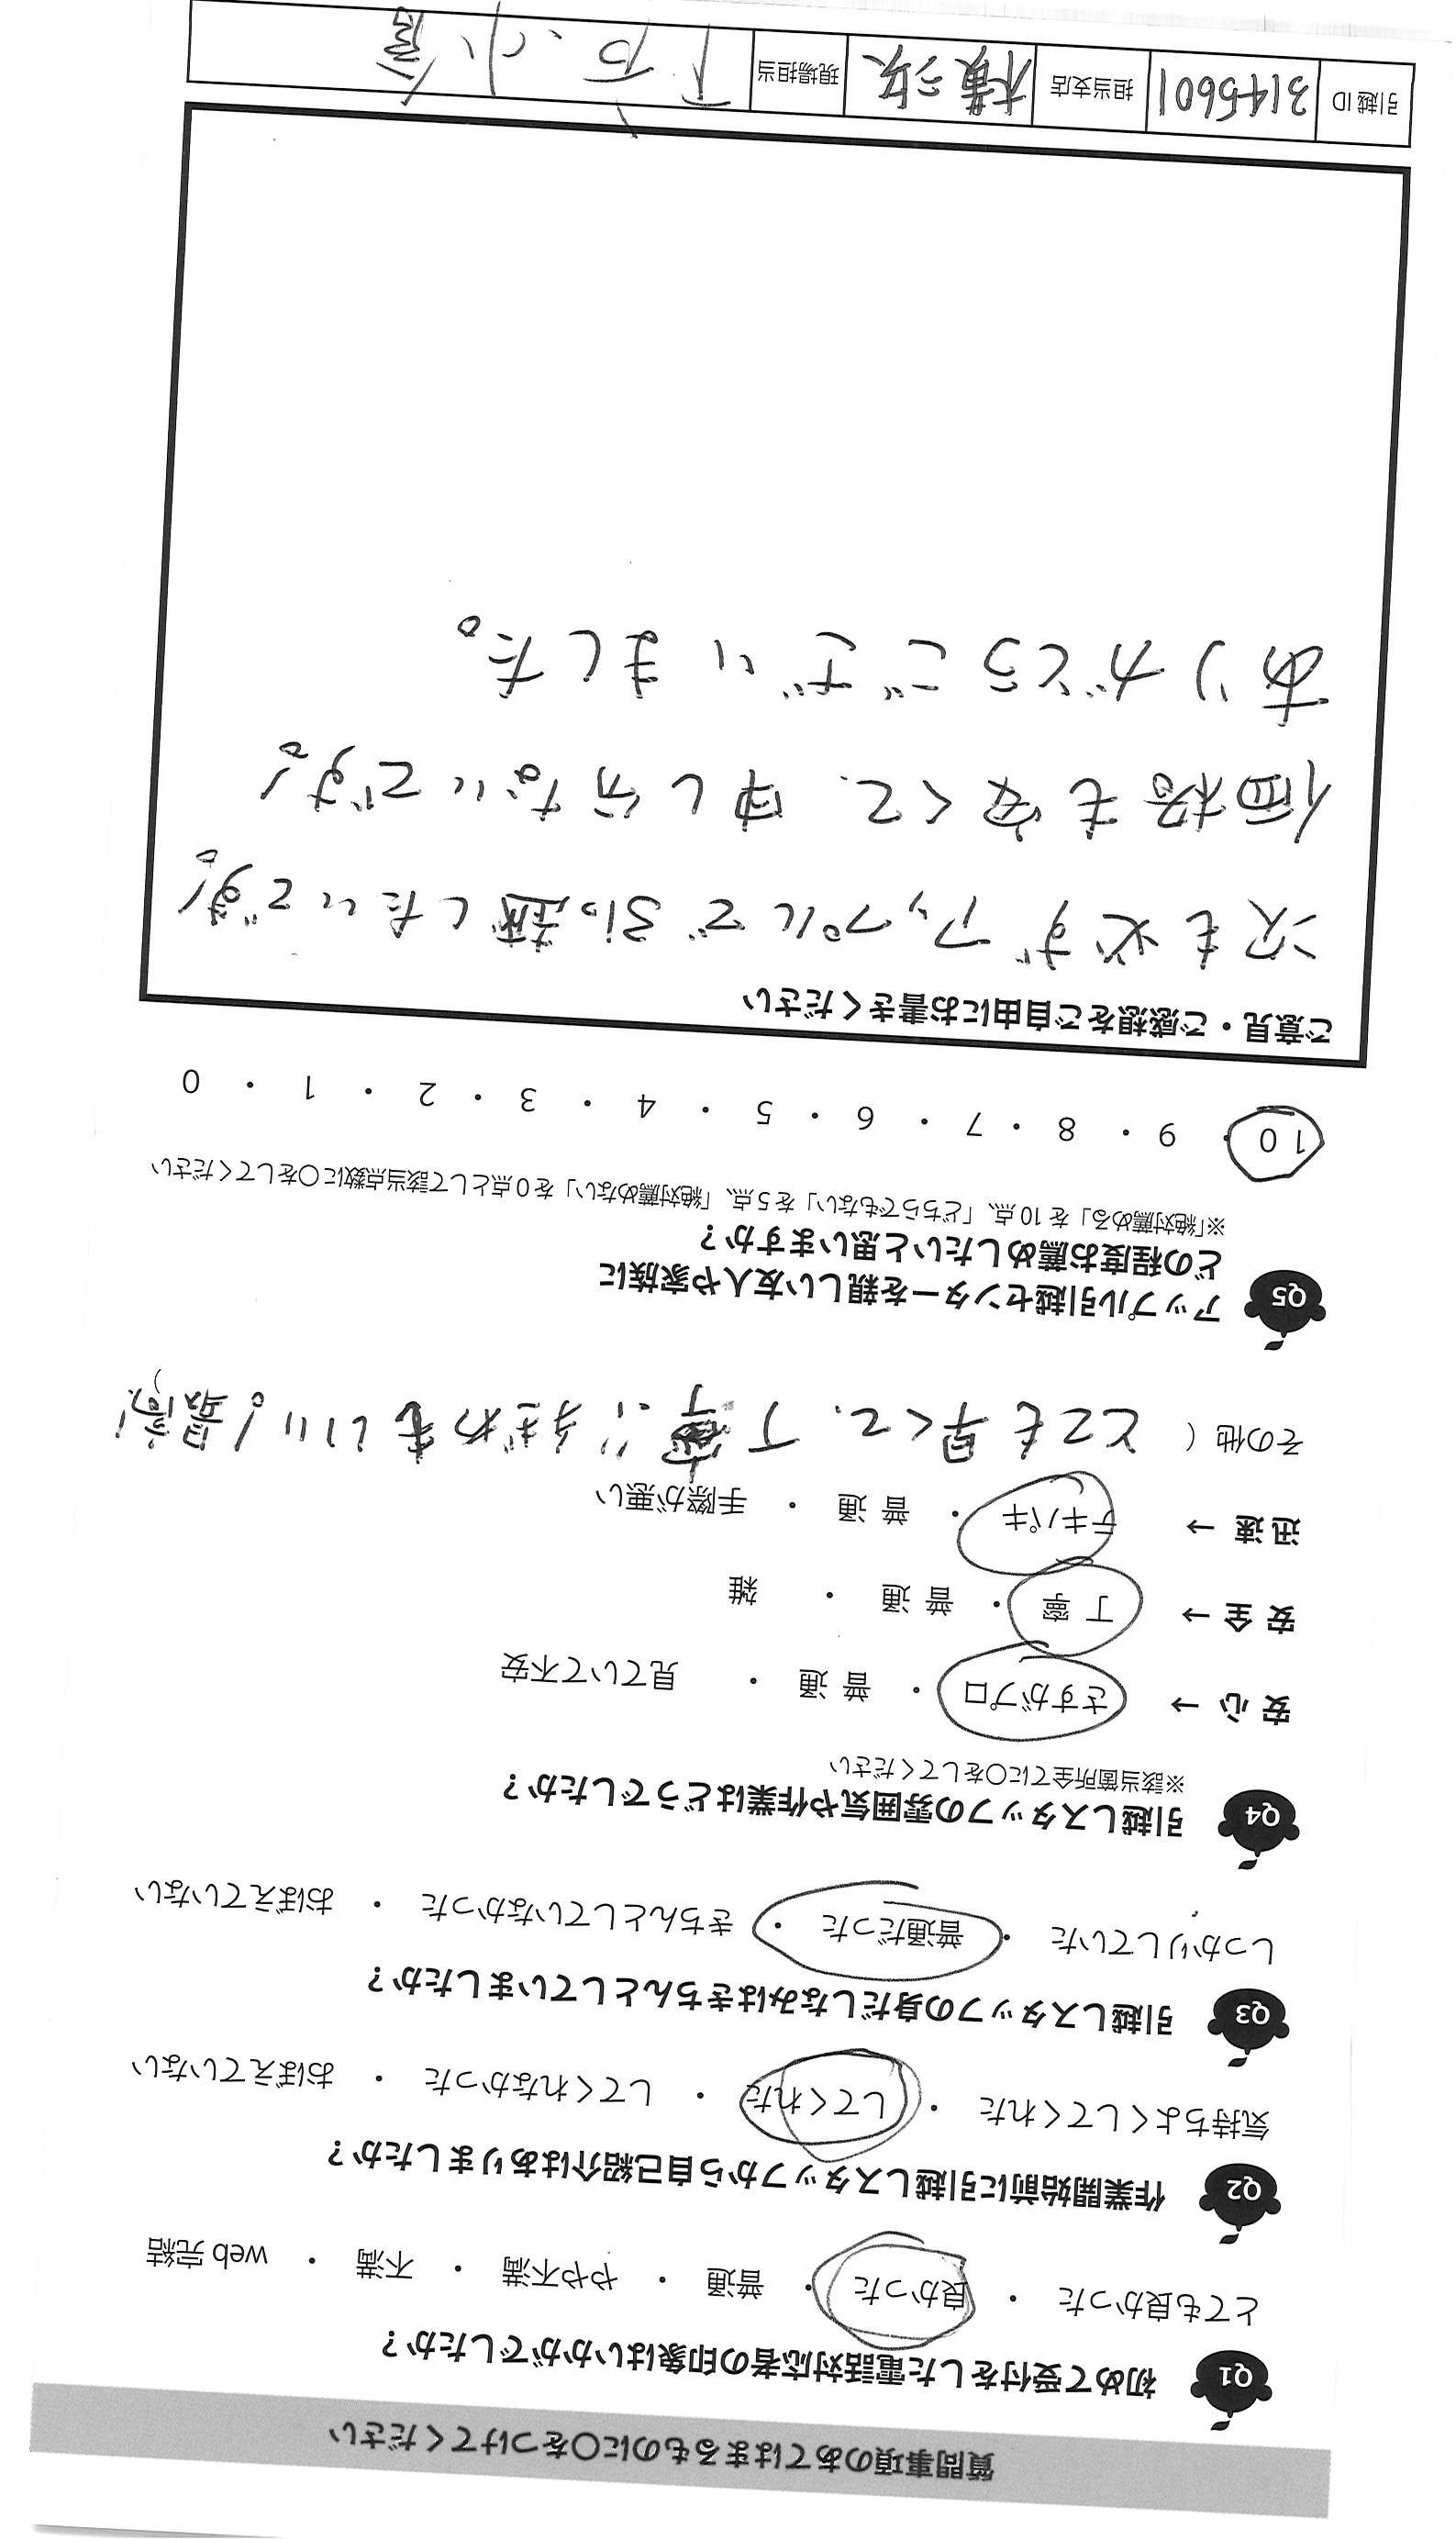 質問事項のあてはまるものに○をつけてください
Q1 初めて受付をした電話対応者の印象はいかがでしたか？
とても良かった ・ 良かった ・ 普通 ・ やや不満 ・ 不満 ・ web 完結
Q2 作業開始前に引越しスタッフから自己紹介はありましたか？
気持ちよくしてくれた ・ してくれた ・ してくれなかった ・ おぼえていない
Q3 引越しスタッフの身だしなみはきちんとしていましたか？
しっかりしていた ・ 普通だった ・ きちんとしていなかった ・ おぼえていない
Q4 引越しスタッフの雰囲気や作業はどうでしたか？
※該当箇所全てに○をしてください
安心 → さすがプロ ・ 普通 ・ 見ていて不安
安全 → 丁寧 ・ 普通 ・ 雑
迅速 → テキパキ ・ 普通 ・ 手際が悪い
その他（ とても早くて、丁寧で、手ぎわもいい！最高！）
Q5 アップル引越センターを親しい友人や家族に
どの程度お薦めしたいと思いますか？
※「絶対薦める」を 10 点、「どちらでもない」を 5 点、「絶対薦めない」を 0 点として該当点数に○をしてください
10 ・ 9 ・ 8 ・ 7 ・ 6 ・ 5 ・ 4 ・ 3 ・ 2 ・ 1 ・ 0
ご意見・ご感想をご自由にお書きください
次も必ずアップルで引っ越ししたいです。
価格も安くて、申し分ないです。
ありがとうございました。
引越 ID 3145601 担当支店 横浜 現場担当 下石、小倉